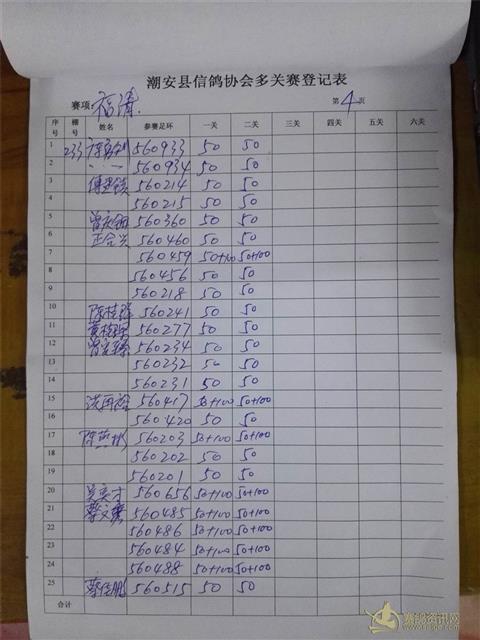 潮安县信鸽协会多关赛登记表
赛项: 福清 第 4 页
序号 棚号 姓名 参赛足环 一关 二关 三关 四关 五关 六关
1 233 560933 50 50
2 560934 50 50
3 560214 50 50
4 560215 50 50
5 560360 50 50
6 正合兴 560460 50 50
7 560459 50+100 50+100
8 560456 50 50
9 560218 50 50
10 陈桂辉 560241 50 50
11 560277 50 50
12 560234 50 50
13 560232 50 50
14 560231 50 50
15 560417 50+100 50+100
16 560420 50 50
17 陈燕彬 560203 50+100 50+100
18 560202 50 50
19 560201 50 50
20 吴英才 560656 50+100 50+100
21 560485 50+100 50+100
22 560486 50+100 50+100
23 560484 50+100 50+100
24 560488 50+100 50+100
25 560515 50 50
合计
赛鸽资讯网